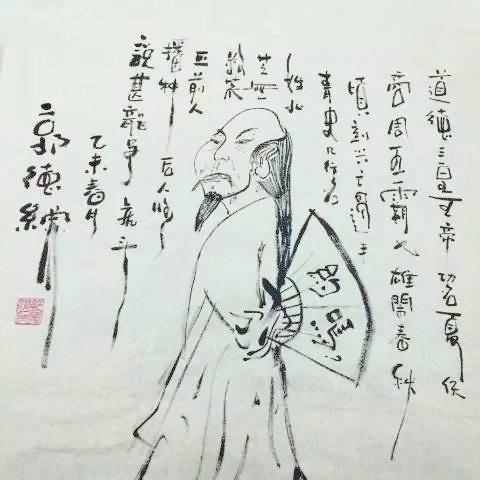 道德三皇五帝功名夏侯
商周五霸七雄鬧春秋
頃刻兴亡過手
青史几行名
姓北
芒無
數荒
丘前人
播种后人收
説甚龍爭虎斗
乙未春月
郭德綱